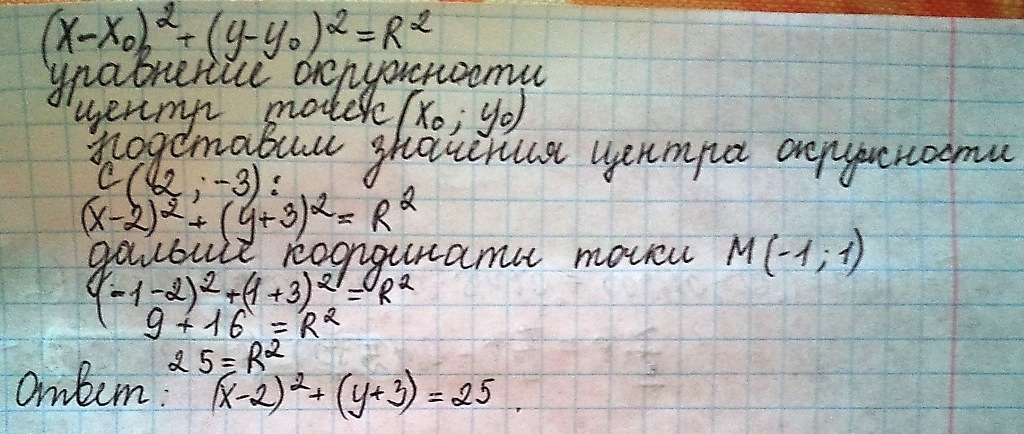 (x-x₀)² + (y-y₀)² = R²
уравнение окружности
центр точек (x₀; y₀)
подставим значения центра окружности
C(2; -3):
(x-2)² + (y+3)² = R²
дальше координаты точки M(-1; 1)
(-1-2)² + (1+3)² = R²
9 + 16 = R²
25 = R²
Ответ: (x-2)² + (y+3) = 25.